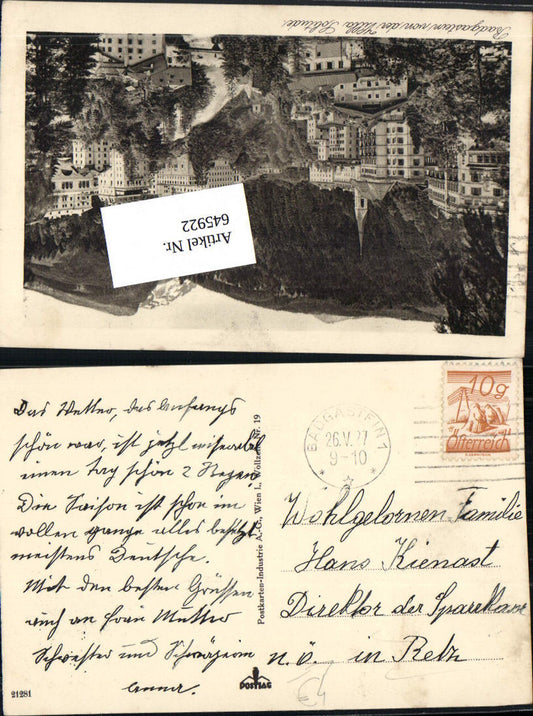 Badgastein von der Villa Solitude
Artikel Nr.
645922
Das Wetter, das Anfangs
schön war, ist jetzt miserabel
einen Tag schön 2 Regen
Die Saison ist schon im
vollen gange alles besetzt
meistens Deutsche.
Mit den besten Grüssen
auch an Frau Mutter
Schwester und Schwägerin
21281
Postkarten-Industrie A.-G., Wien I., Wollzeile Nr. 19
POSTIAG
BADGASTEIN 1
26.V.27
9-10
10g
Österreich
Wohlgelornen Familie
Hans Kienast
Direktor der Sparekasse
n.ö. in Retz